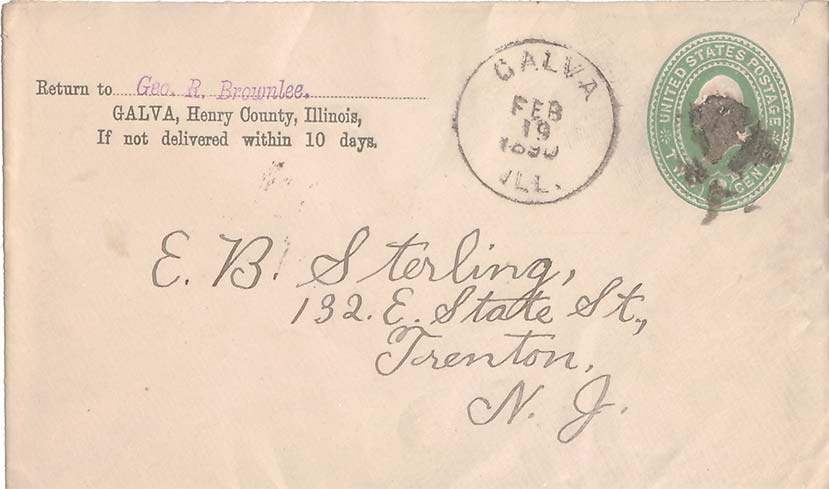 Return to Geo. R. Brownlee.
GALVA, Henry County, Illinois,
If not delivered within 10 days.
GALVA
FEB
19
1890
ILL.
UNITED STATES POSTAGE
TWO CENTS
E. B. Sterling,
132. E. State St.,
Trenton,
N. J.